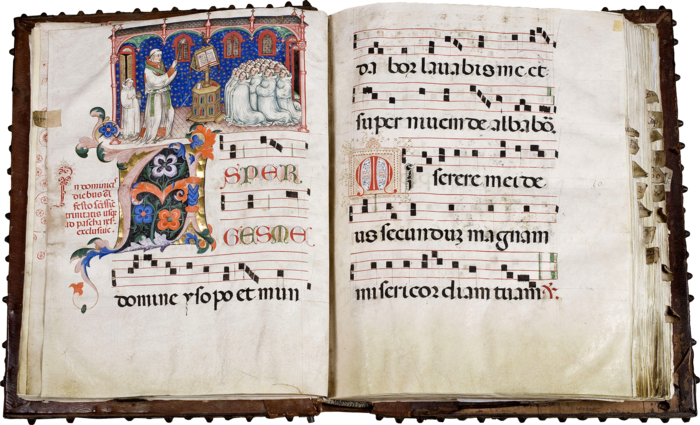 n dominicis
diebus a
festo scissime
trinitatis usque
ad pascha
exclusive.
A
SPER
GESME
domine ysopo et mun
da bor lauabis me et
super niuem de albabõ
M serere mei de
us secunduz magnam
misericordiam tuam V.